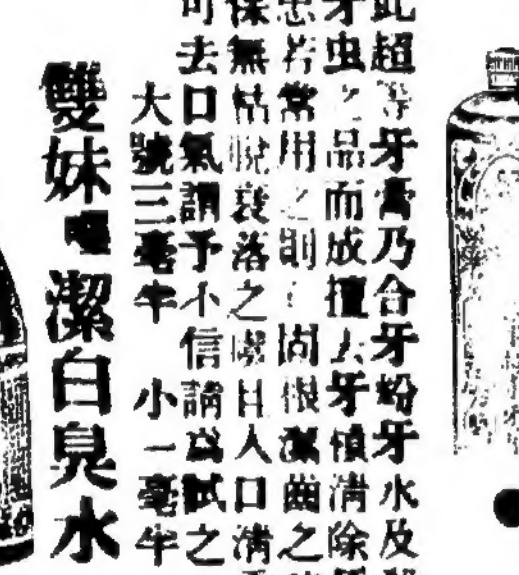 此超等牙膏乃合牙粉牙水及
牙虫之品而成擅去牙 清除
患若常用之則 固根 齒之
保無枯脫衰落之 且人口清
可去口氣謂予不信請為試之
大號三毫半 小一毫半
雙妹嚜潔白臭水